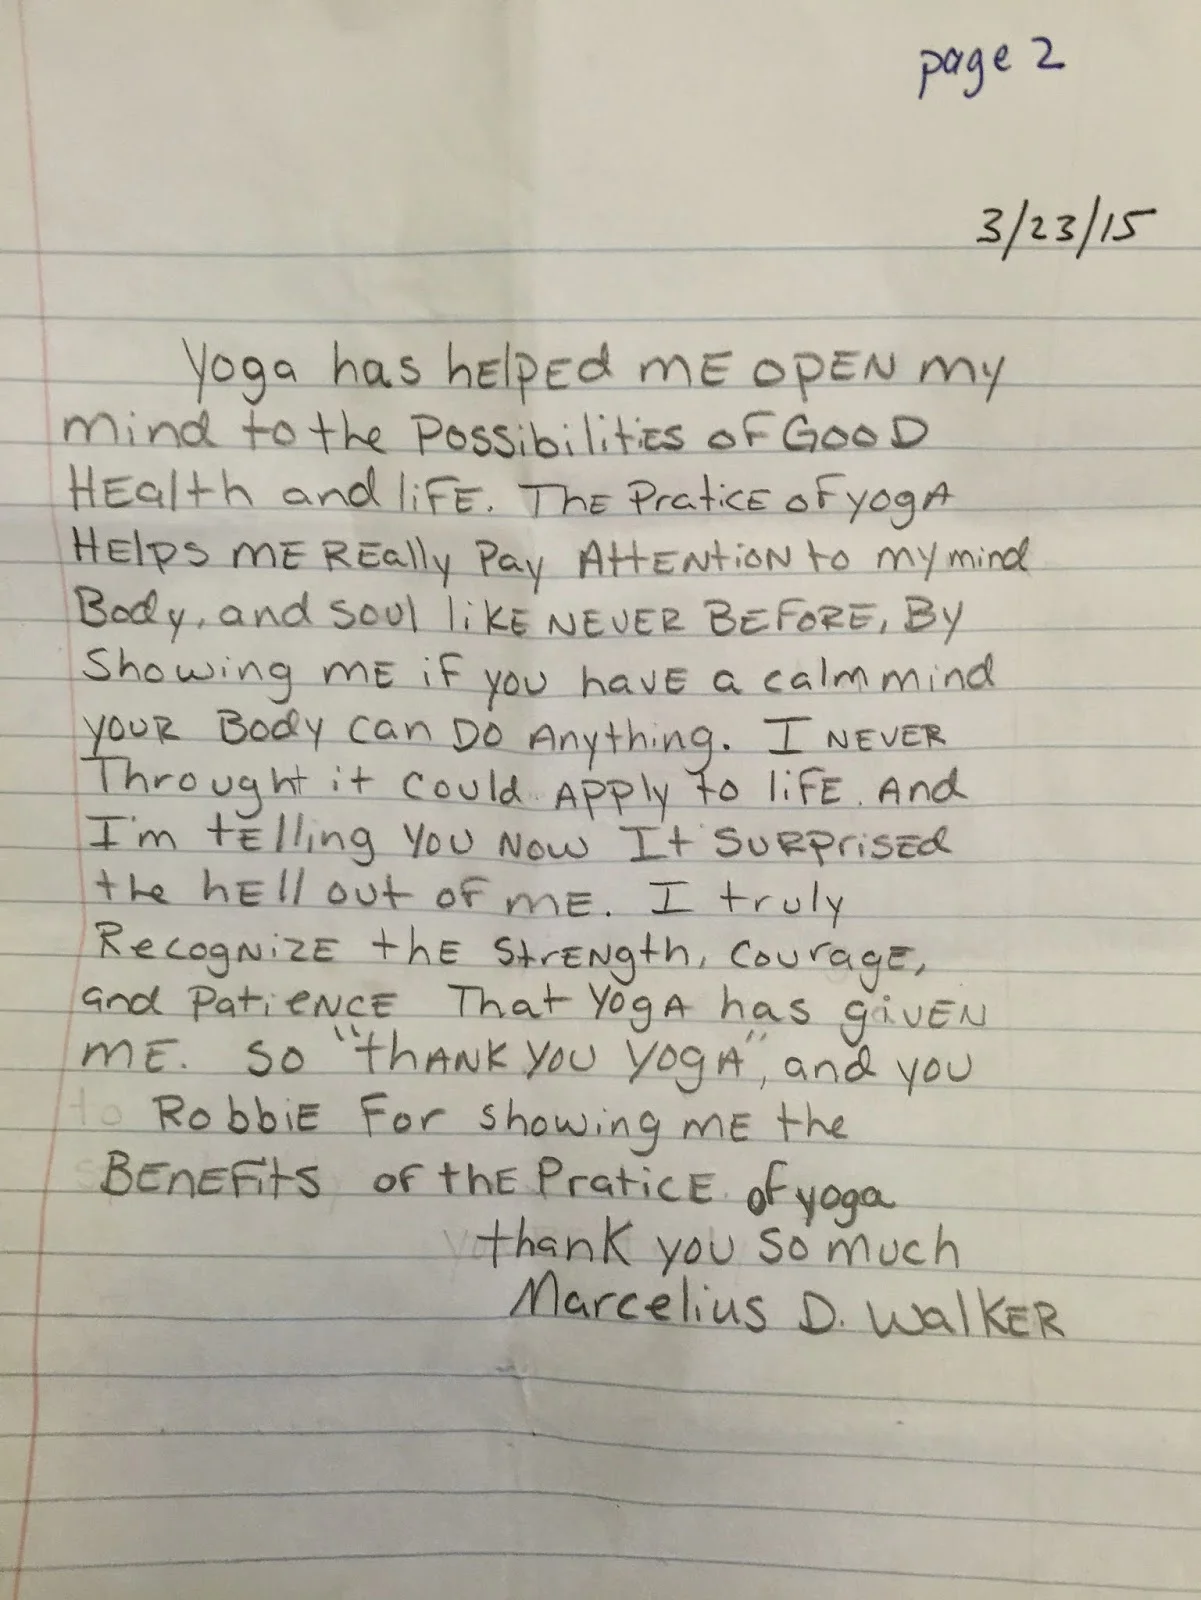 page 2
3/23/15
Yoga has hElpEd mE OPEN my
mind to the PossibilitiEs oF GooD
HEalth and liFE. ThE PraticE oF yogA
HElps mE REally Pay AttENtioN to my mind
Body, and soul likE NEVER BEFORE, By
Showing mE iF you havE a calm mind
youR Body can Do Anything. I NEVER
Throught it could Apply To liFE. And
I'm tElling you Now It SuRPrisEd
the hEll out oF mE. I truly
RecogNizE thE StrENgth, CouragE,
and PatiENCE That YogA has givEN
mE. So "thANK You YogA", and you
RobbiE For showing mE the
BEnEFits oF thE PraticE of yoga
thank you so much
Marcelius D. WalkER